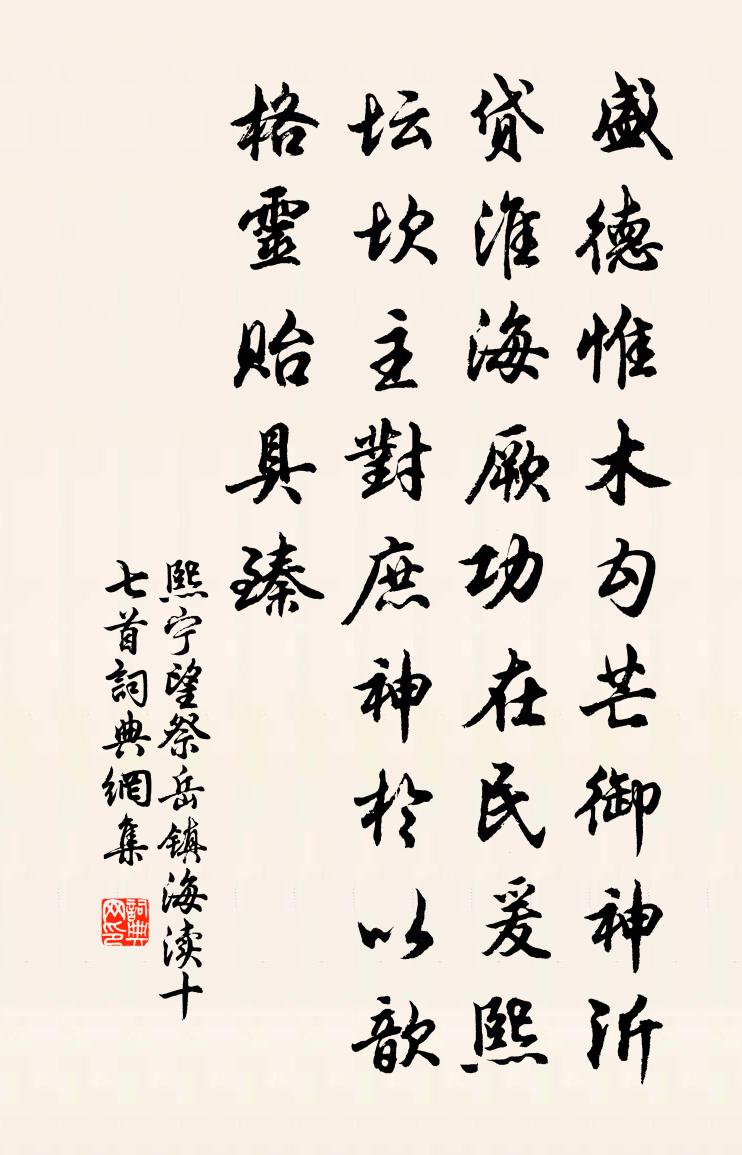 盛德惟木勾芒御神沂
贷淮海厥功在民爰熙
坛坎主對庶神於以歆
格靈贻具臻
熙宁望祭岳镇海渎十
七首詞典網集
詞典
网印